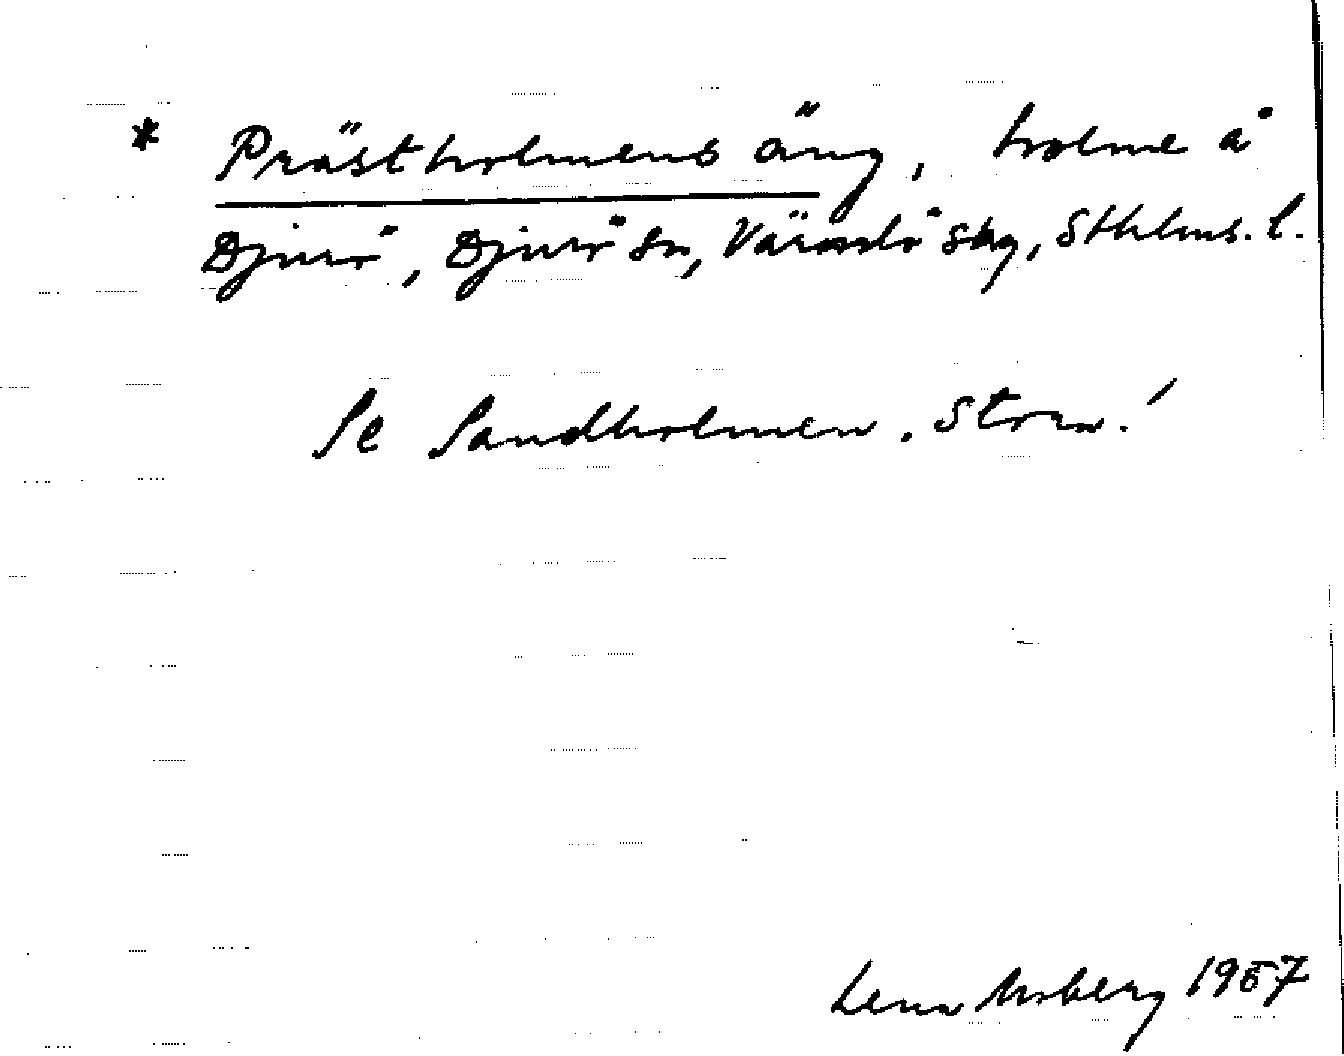 * Prästholmens äng, holme å
Djurö, Djurö sn, Värmdö skg, Sthlms. l.
Se Sandholmen, Stora!
Lena Moberg 1967